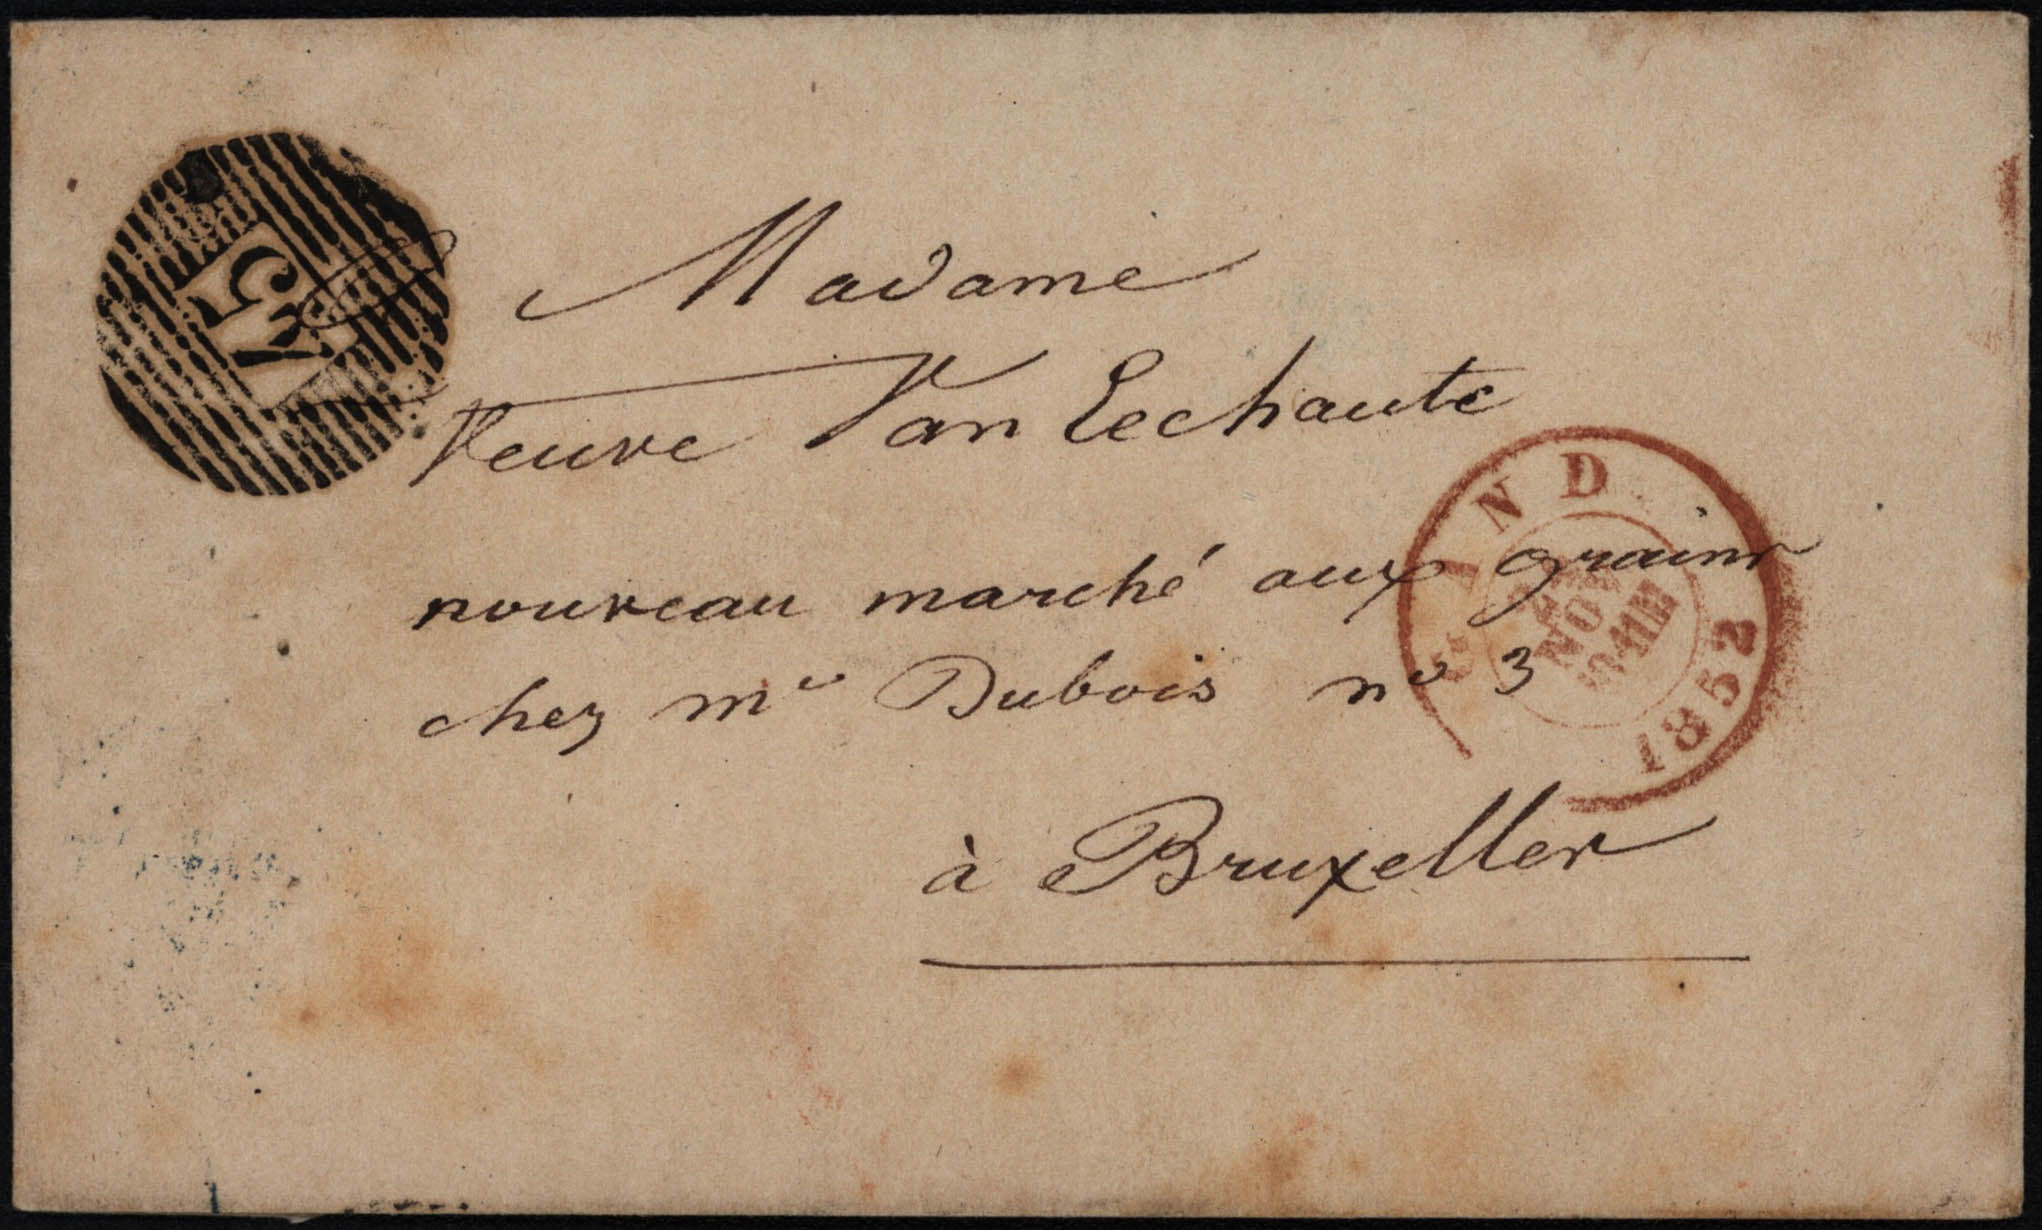 Madame
Veuve Van Eechaute
nouveau marché aux grains
chez Mr Dubois no 3
à Bruxelles
GAND
NOV
1852